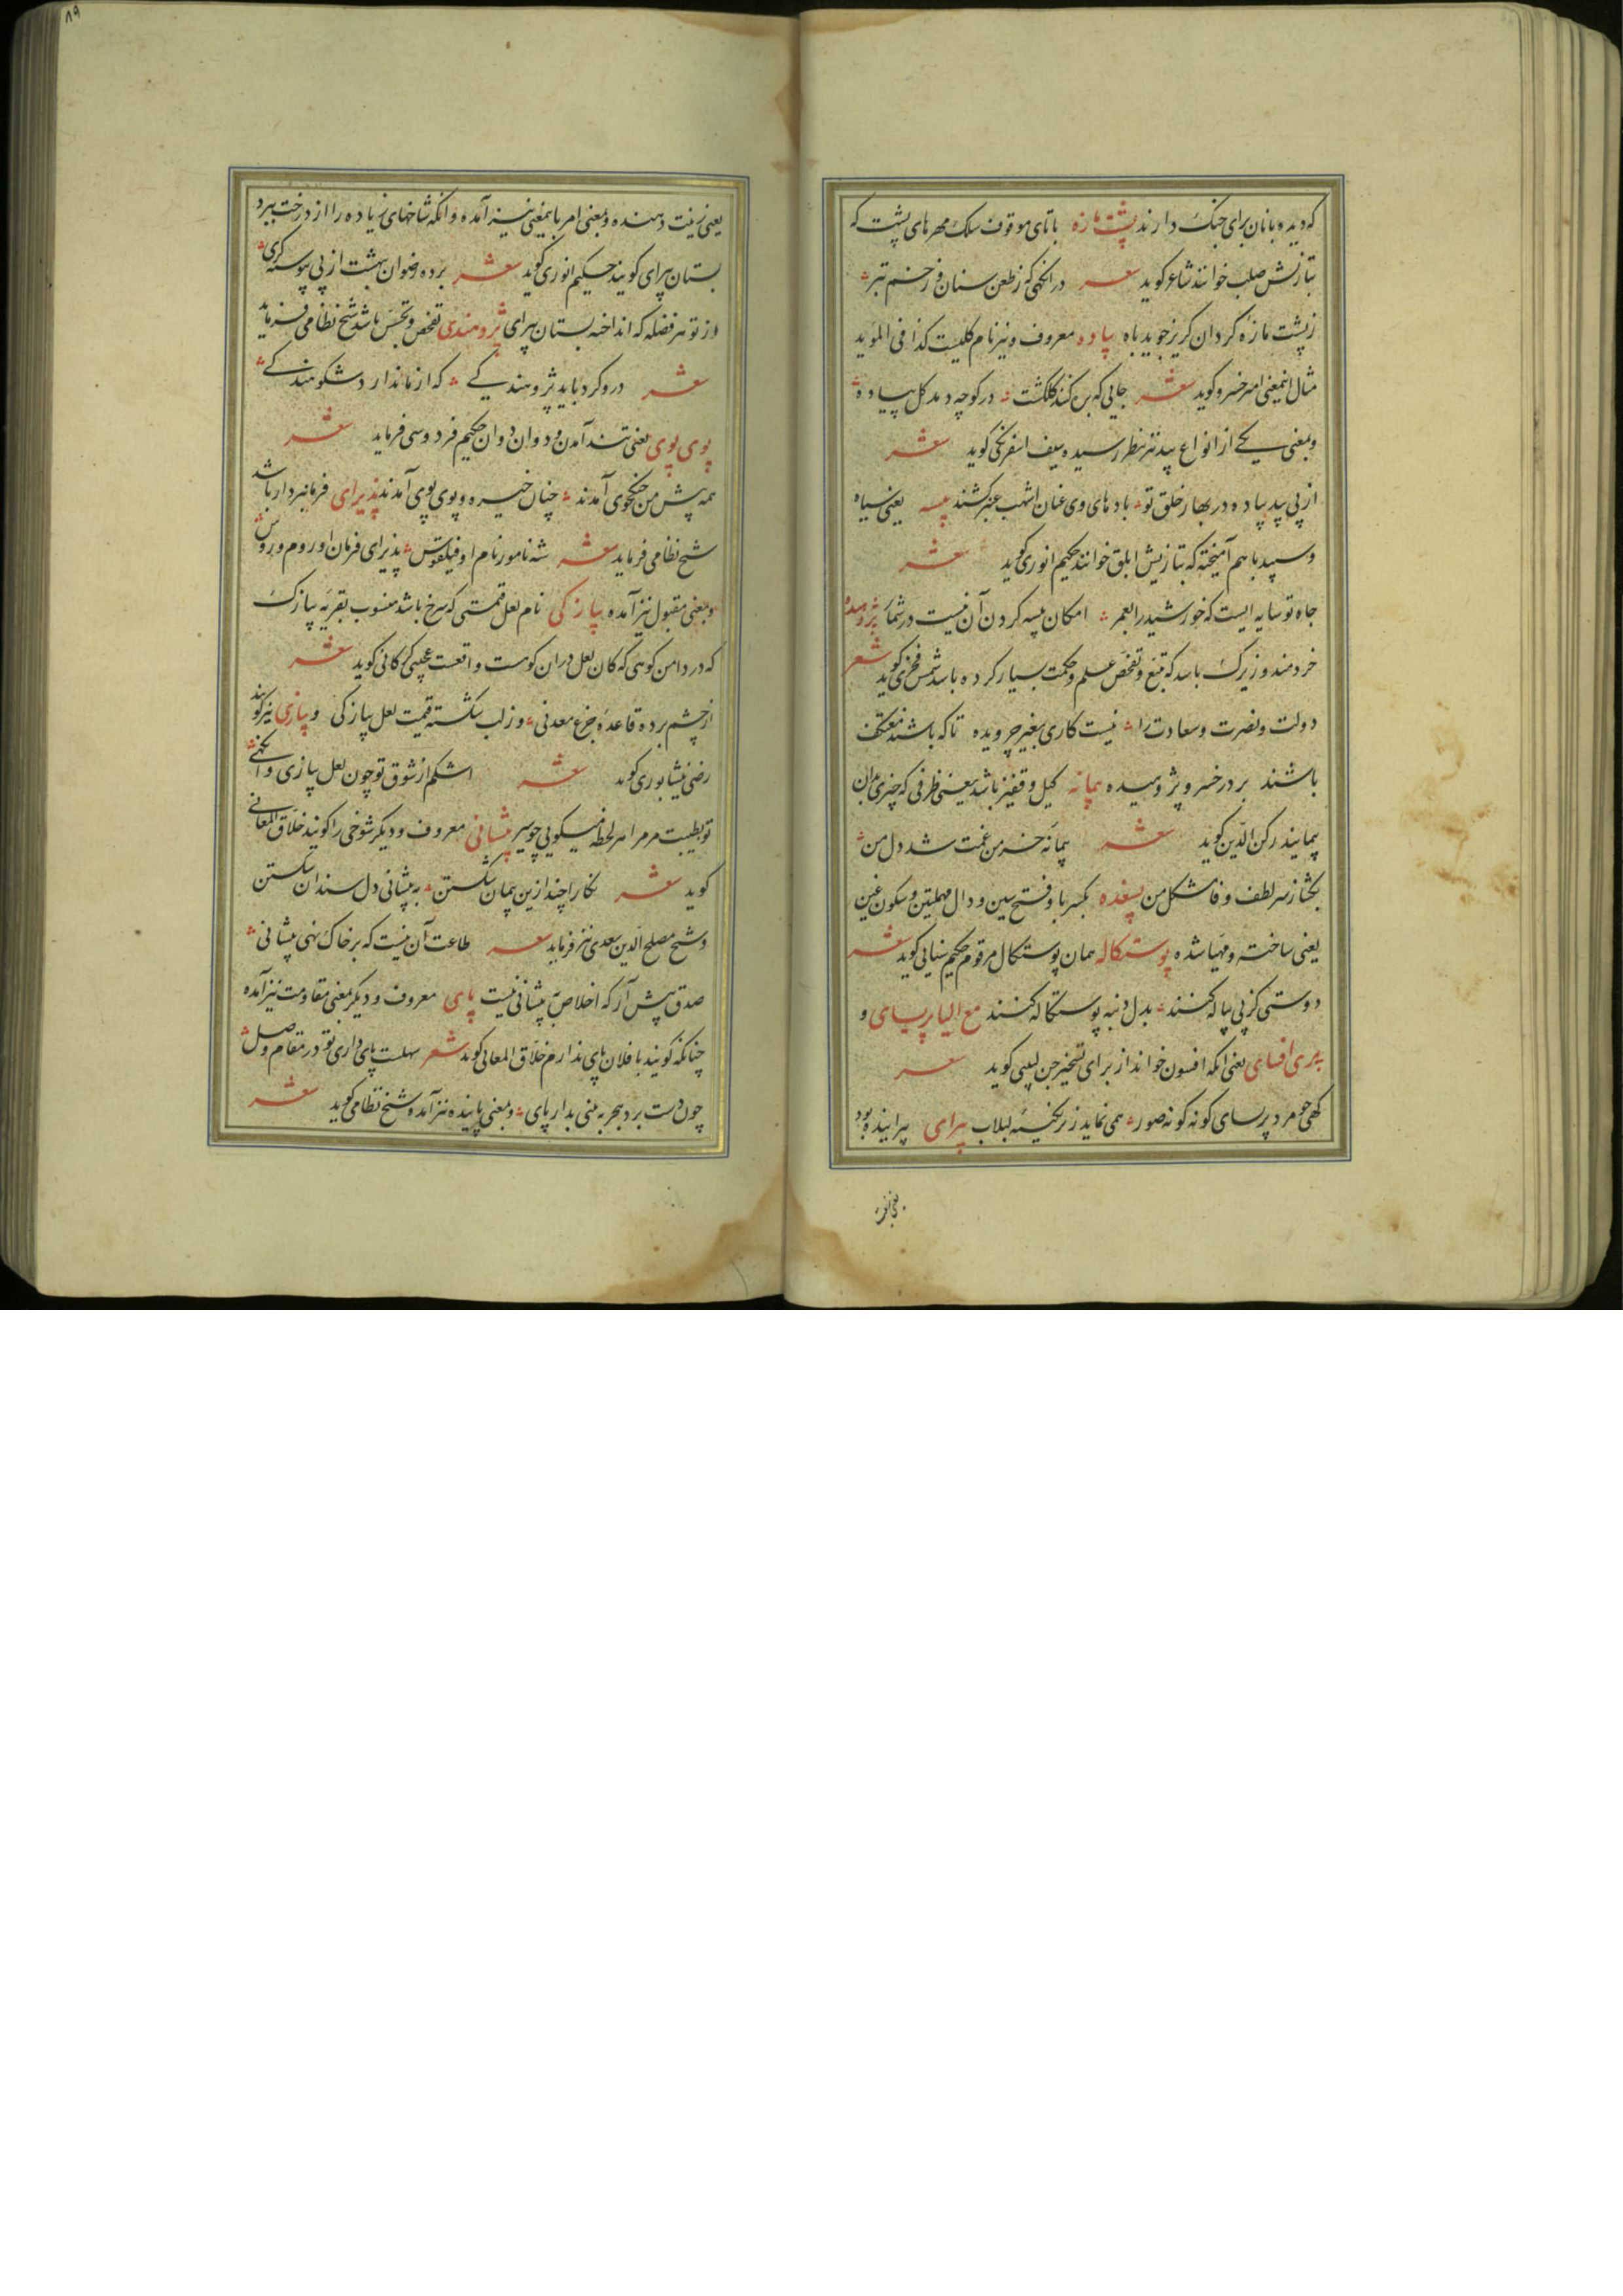 که دیده بانان برای جنک دارند پشت مازه باتای موقوف سلک مهرهای پشت که
بتازیش صلب خوانند شاعر کوید شعر در انکهی که زطعن سنان و زخم تبر
زپشت مازه کردان کریز جوید باه پیاده معروف و نیز نام کلیست کذا فی الموید
مثال اینمعنی امیر خسرو کوید شعر جایی که کنند کلکشت در کوچه دمد کل پیاده
و بمعنی یکی از انواع بید نیز بنظر رسیده سیف اسفرنکی کوید شعر
از پی بید پیاده در بهار خلق تو بادهای وی عنان اشهب عنبر کشند پیسه یعنی سیاه
و سپید با هم آمیخته که بتازیش ابلق خوانند حکیم انوری کوید شعر
جاه تو سایه ایست که خورشید را بعمر امکان پیسه کردن آن نیست در شمار پژوهیده
خردمند و زیرک باشد که تتبع و تفحص علم و حکمت بسیار کرده باشد شمس فخری کوید شعر
دولت و نصرت و سعادت را نیست کاری بغیر جرویده تا که باشند معتکف
باشند بر در خسرو پژوهیده پیمانه کیل و قفیز باشد یعنی ظرفی که چیزی بدان
پیمایند رکن الدین کوید شعر پیمانه خرمن غمت شد دل من
بکشا ز سر لطف و فا مشکل من پسغده بکسر با و فتح سین و دال مهملتین و سکون غین
یعنی ساخته و مهیا شده پوستکاله همان پوستکال مرقوم حکیم سنایی کوید شعر
دوستی کز پی پیاله کنند بدل دنبه پوستکاله کنند مع الیا پریسای و
پری افسای یعنی انکه افسون خواند از برای تسخیر جن لبیبی کوید شعر
کهی چو مرد پریسای کونه کونه صور همی نماید زیر نکینه لبلاب پیرای پیراینده بود
یعنی زینت
یعنی زینت دهنده و بمعنی امر باینمعنی نیز آمده و انکه شاخهای زیاده را از درخت ببرد
بستان پیرای کویند حکیم انوری کوید شعر برده رضوان بهشت از پی پیوسته کری
از تو هر فضله که انداخته بستان پیرای پژوهندی تفحص و تجسس باشد شیخ نظامی فرماید
شعر درو کرد باید پژوهندکی که از ما ندارد شکوهندکی
پوی پوی یعنی تند آمدن و دوان دوان حکیم فردوسی فرماید شعر
همه پیش من جنکجوی آمدند چنان خیره و پوی پوی آمدند پذیرای فرمانبردار باشد
شیخ نظامی فرماید شعر شه نامور نام او فیلقوس پذیرای فرمان او روم و روس
و بمعنی مقبول نیز آمده پیازکی نام لعل قیمتی که سرخ باشد منسوب بقریه پیازک
که در دامن کوهی که کان لعل در ان کوهست واقعست نجیبی کاکانی کوید شعر
از چشم برده قاعده جزع معدنی وز لب شکسته قیمت لعل پیازکی و پیازی نیز کویند
رضی نیشابوری کوید شعر اشکم از شوق تو چون لعل پیازی وانکهی
تو بطیبت مرمرا هر لحظه میکویی چو سیر پیشانی معروف و دیکر شوخی را کویند خلاق المعانی
کوید شعر نکارا چند ازین پیمان شکستن به پیشانی دل سندان شکستن
و شیخ مصلح الدین سعدی نیز فرماید شعر طاعت آن نیست که بر خاک نهی پیشانی
صدق پیش آر که اخلاص به پیشانی نیست پای معروف و دیکر بمعنی مقاومت نیز آمده
چنانکه کویند با فلان پای ندارم خلاق المعالی کوید شعر سهلست پای داری تو در مقام وصل
چون دست برد هجر به بینی بدار پای و بمعنی پاینده نیز آمده شیخ نظامی کوید شعر
۸۹